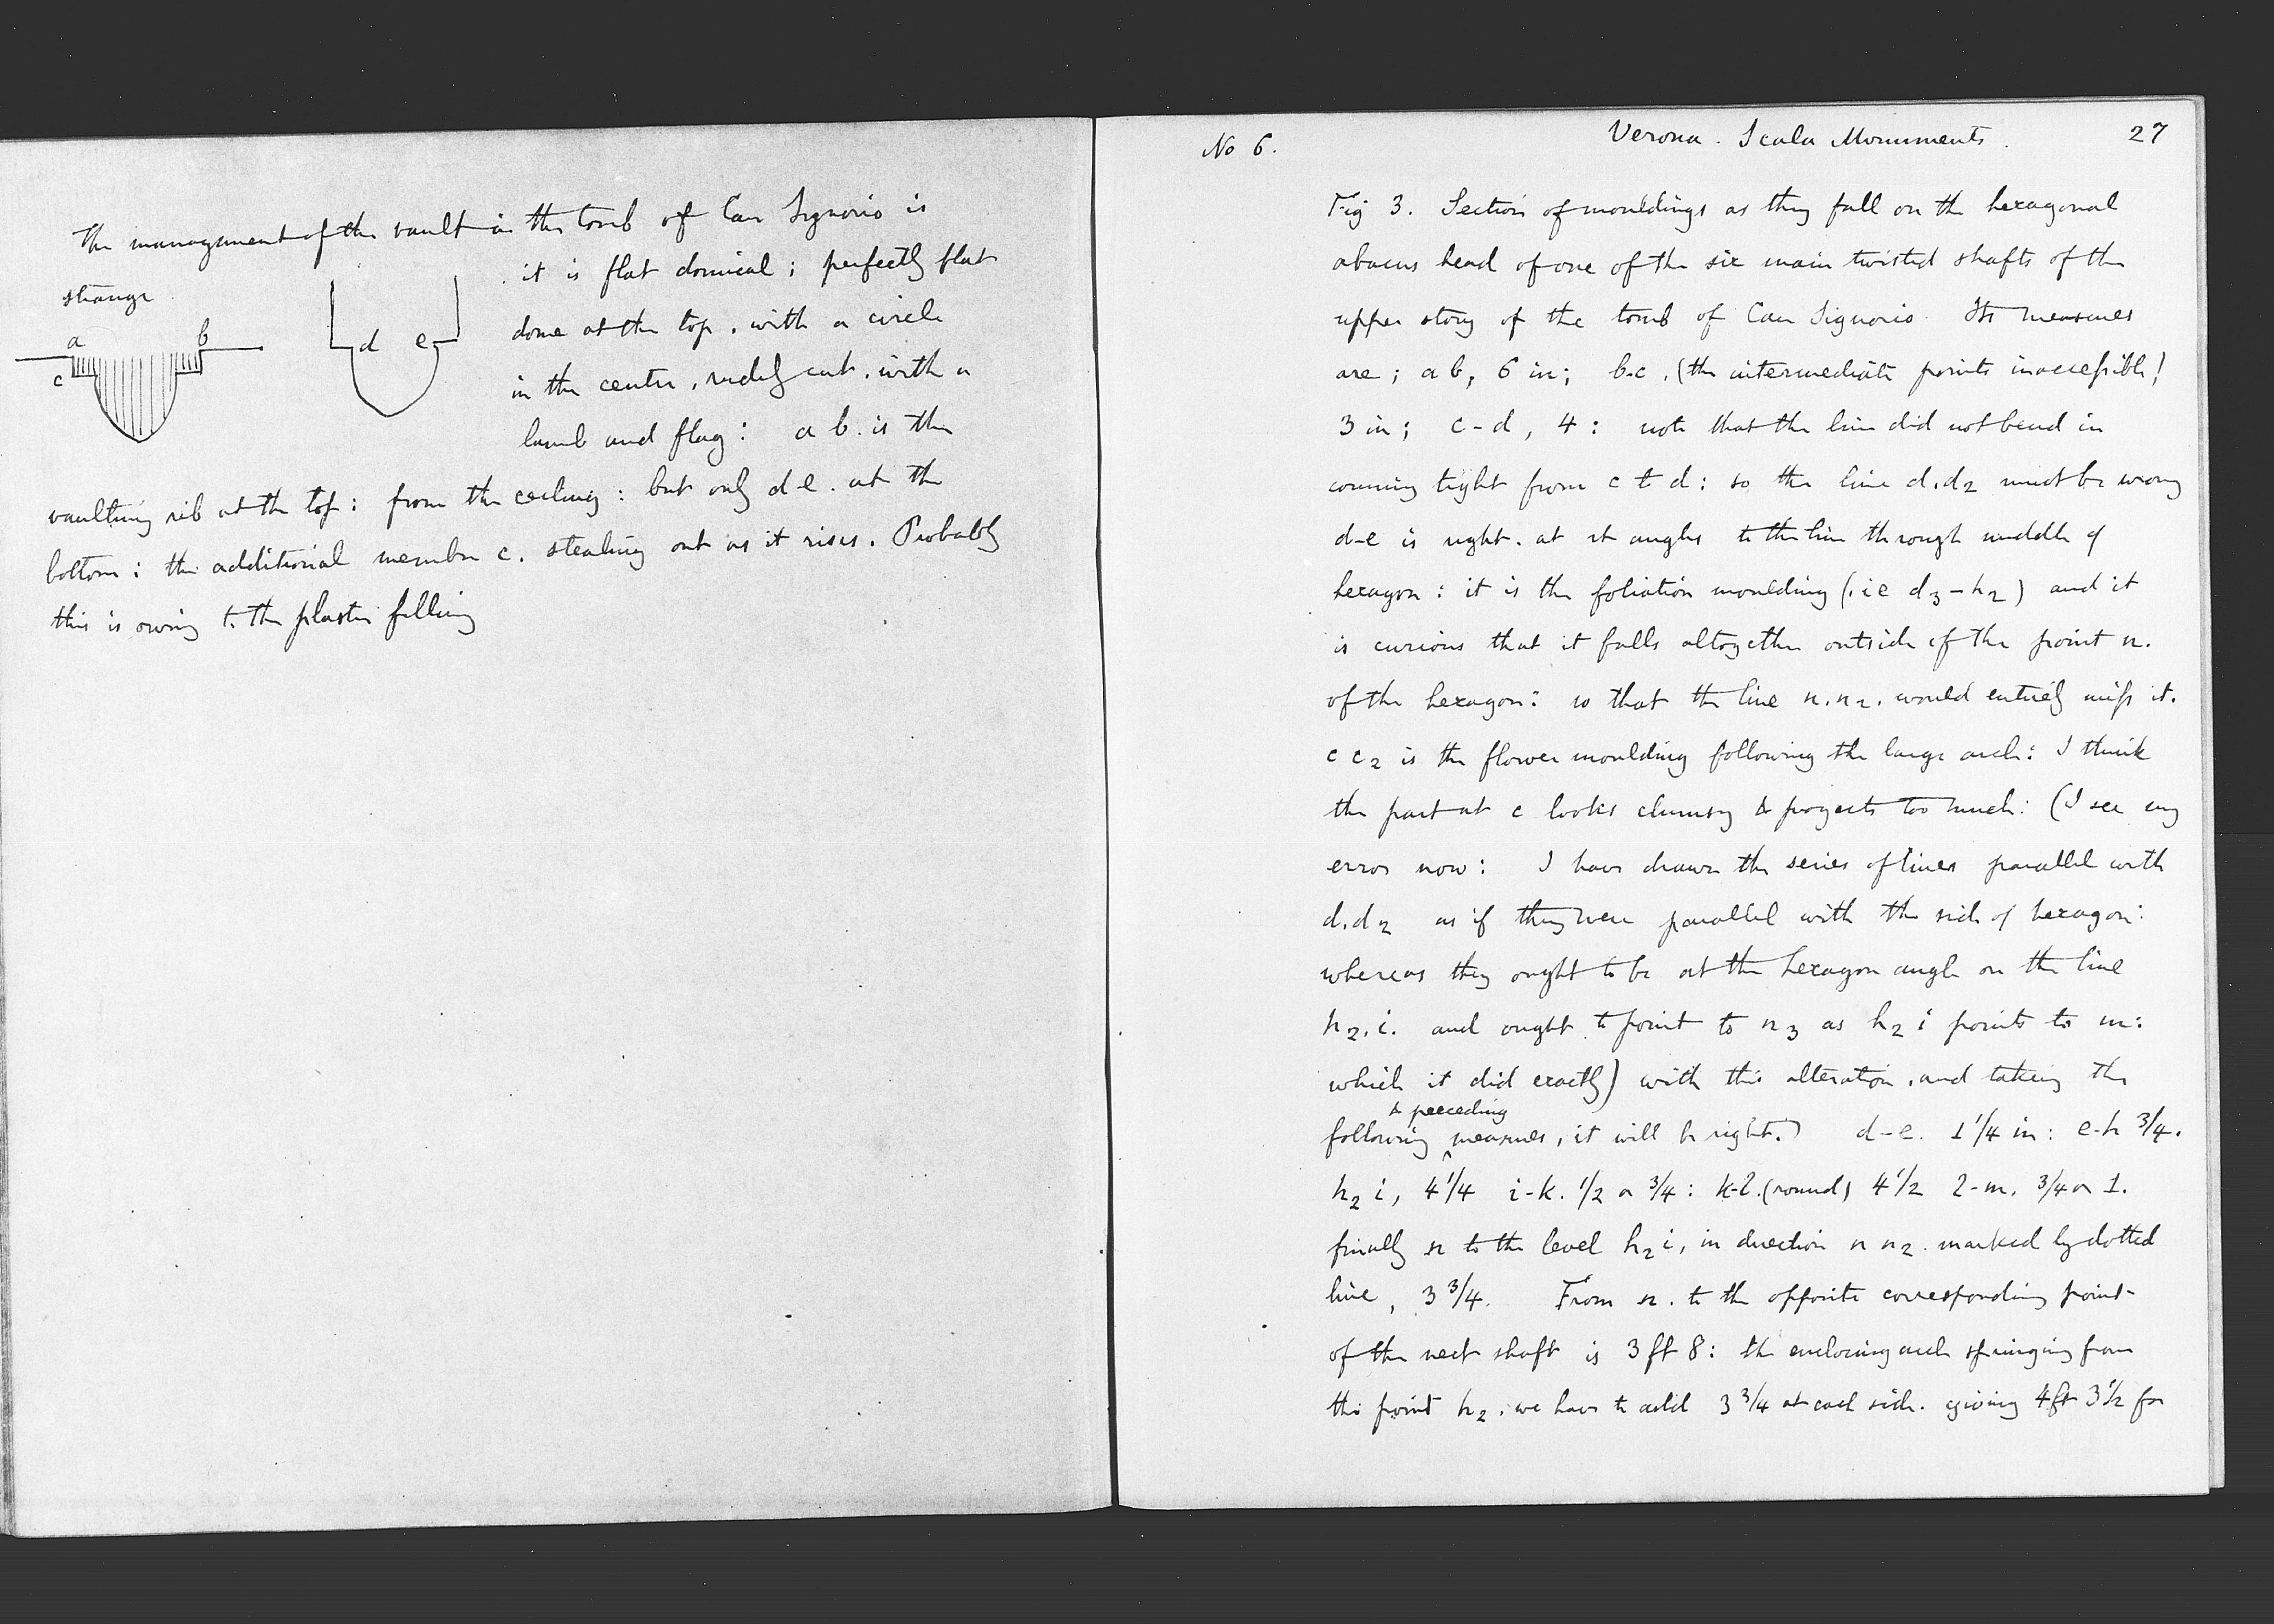 The management of the vault in the tomb of Can Signorio is
strange
it is flat domical; perfectly flat
done at the top, with a circle
in the center, rudely cut, with a
lamb and flag: a b. is the
a b
c
d e
vaulting rib at the top: from the ceiling: but only d e. at the
bottom: the additional member c. stealing out as it rises. Probably
this is owing to the plaster filling
No 6. Verona. Scala Monuments. 27
Fig 3. Section of mouldings as they fall on the hexagonal
abacus head of one of the six main twisted shafts of the
upper story of the tomb of Can Signorio. Its measures
are; a b, 6 in; b-c, (the intermediate points inaccessible)
3 in; c-d, 4: note that the line did not bend in
coming tight from c to d: so the line d.d2 must be wrong
d-e is right. at rt angles to the line through middle of
hexagon: it is the foliation moulding (ie d3-h2) and it
is curious that it falls altogether outside of the point n.
of the hexagon: so that the line n.n2. would entirely miss it.
c c2 is the flower moulding following the large arch: I think
the part at c looks clumsy & projects too much: (I see my
error now: I have drawn the series of lines parallel with
d.d2 as if they were parallel with the side of hexagon:
whereas they ought to be at the hexagon angle on the line
h2.i. and ought to point to n3 as h2 i points to m:
which it did exactly) with this alteration, and taking the
following & preceding measures, it will be right.) d-e. 1 1/4 in: e-h 3/4.
h2 i, 4 1/4 i-k. 1/2 or 3/4: k-l. (round) 4 1/2 l-m. 3/4 or 1.
finally n to the level h2 i, in direction n n2. marked by dotted
line, 3 3/4. From n. to the opposite corresponding point
of the next shaft is 3 ft 8: the enclosing arch springing from
the point h2. we have to add 3 3/4 at each side. giving 4 ft 3 1/2 for